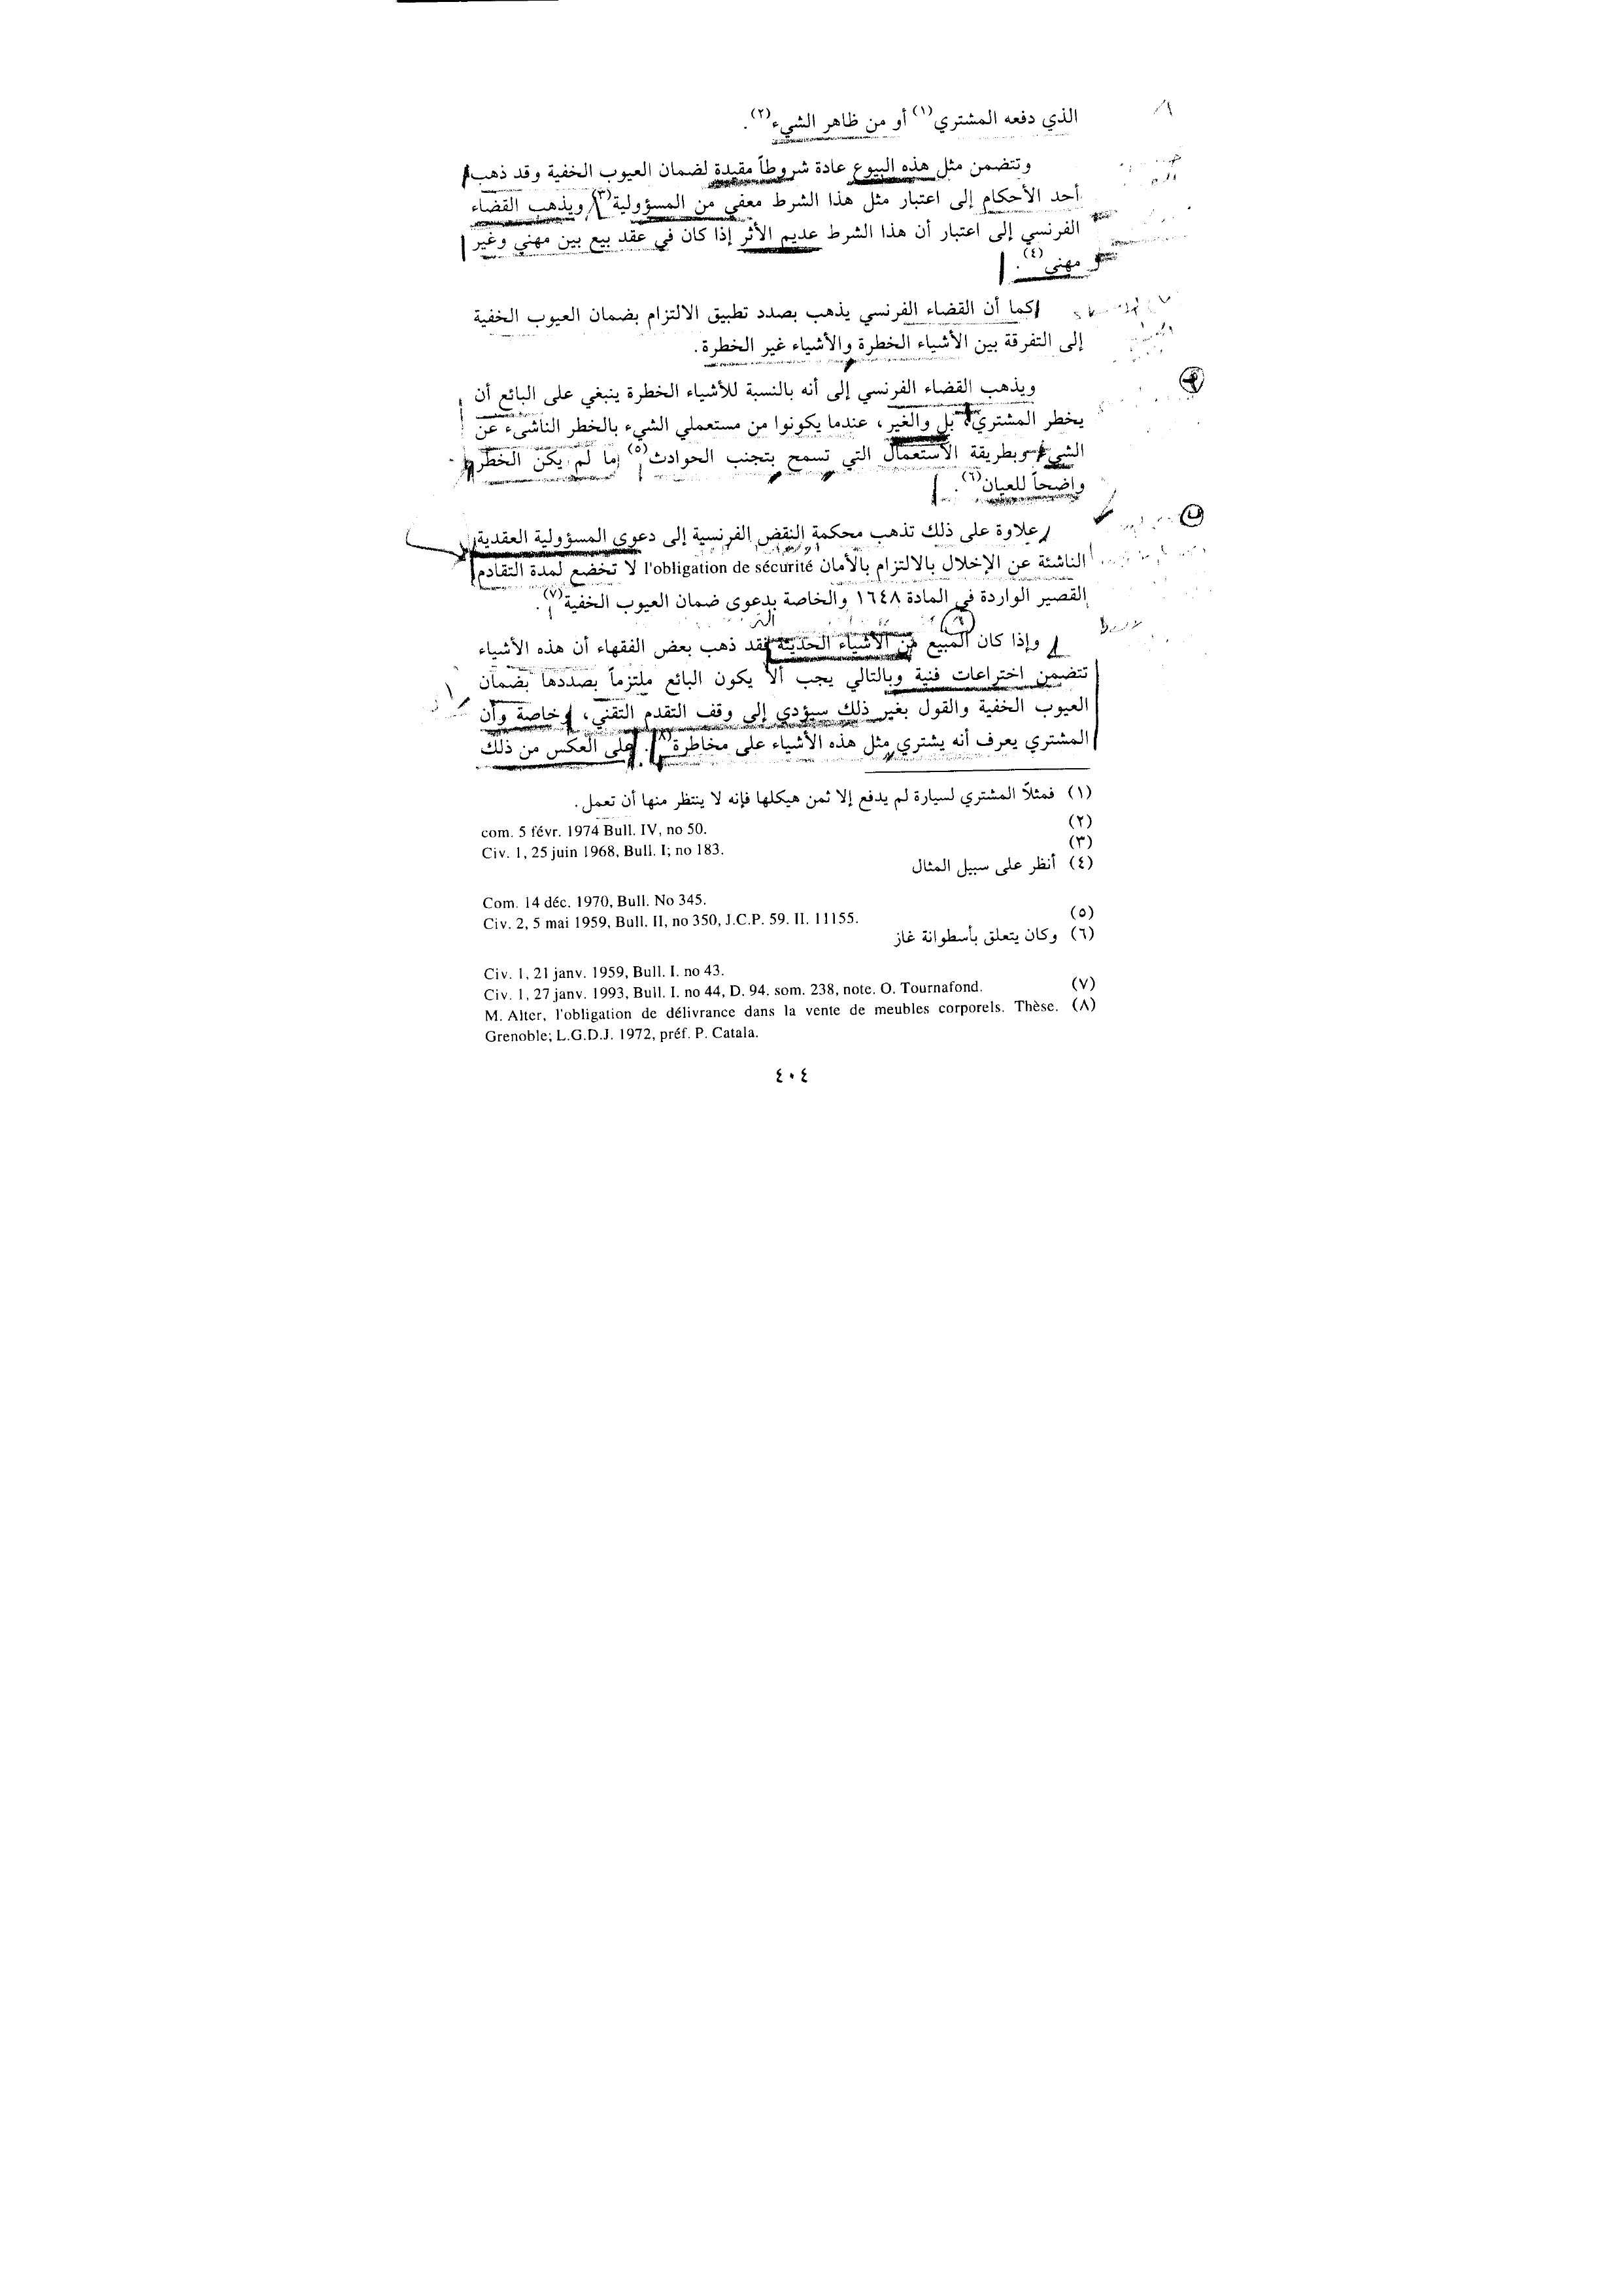 الذي دفعه المشتري(١) أو من ظاهر الشيء(٢).
وتتضمن مثل هذه البيوع عادة شروطاً مقيدة لضمان العيوب الخفية وقد ذهب
أحد الأحكام إلى اعتبار مثل هذا الشرط معفي من المسؤولية(٣) ويذهب القضاء
الفرنسي إلى اعتبار أن هذا الشرط عديم الأثر إذا كان في عقد بيع بين مهني وغير
مهني(٤).
كما أن القضاء الفرنسي يذهب بصدد تطبيق الالتزام بضمان العيوب الخفية
إلى التفرقة بين الأشياء الخطرة والأشياء غير الخطرة.
ويذهب القضاء الفرنسي إلى أنه بالنسبة للأشياء الخطرة ينبغي على البائع أن
يخطر المشتري، بل والغير، عندما يكونوا من مستعملي الشيء بالخطر الناشىء عن
الشيء وبطريقة الاستعمال التي تسمح بتجنب الحوادث(٥) ما لم يكن الخطر
واضحاً للعيان(٦).
علاوة على ذلك تذهب محكمة النقض الفرنسية إلى دعوى المسؤولية العقدية
الناشئة عن الإخلال بالالتزام بالأمان l'obligation de sécurité لا تخضع لمدة التقادم
القصير الواردة في المادة ١٦٤٨ والخاصة بدعوى ضمان العيوب الخفية(٧).
وإذا كان المبيع من الأشياء الحديثة فقد ذهب بعض الفقهاء أن هذه الأشياء
تتضمن اختراعات فنية وبالتالي يجب ألا يكون البائع ملتزماً بصددها بضمان
العيوب الخفية والقول بغير ذلك سيؤدي إلى وقف التقدم التقني، خاصة وأن
المشتري يعرف أنه يشتري مثل هذه الأشياء على مخاطرة(٨). على العكس من ذلك
(١) فمثلاً المشتري لسيارة لم يدفع إلا ثمن هيكلها فإنه لا ينتظر منها أن تعمل.
(٢) com. 5 févr. 1974 Bull. IV, no 50.
(٣) Civ. 1, 25 juin 1968, Bull. I; no 183.
(٤) أنظر على سبيل المثال
Com. 14 déc. 1970, Bull. No 345.
(٥) Civ. 2, 5 mai 1959, Bull. II, no 350, J.C.P. 59. II. 11155.
(٦) وكان يتعلق بأسطوانة غاز
Civ. 1, 21 janv. 1959, Bull. I. no 43.
(٧) Civ. 1, 27 janv. 1993, Bull. I. no 44, D. 94. som. 238, note. O. Tournafond.
(٨) M. Alter, l'obligation de délivrance dans la vente de meubles corporels. Thèse.
Grenoble; L.G.D.J. 1972, préf. P. Catala.
٤٠٤